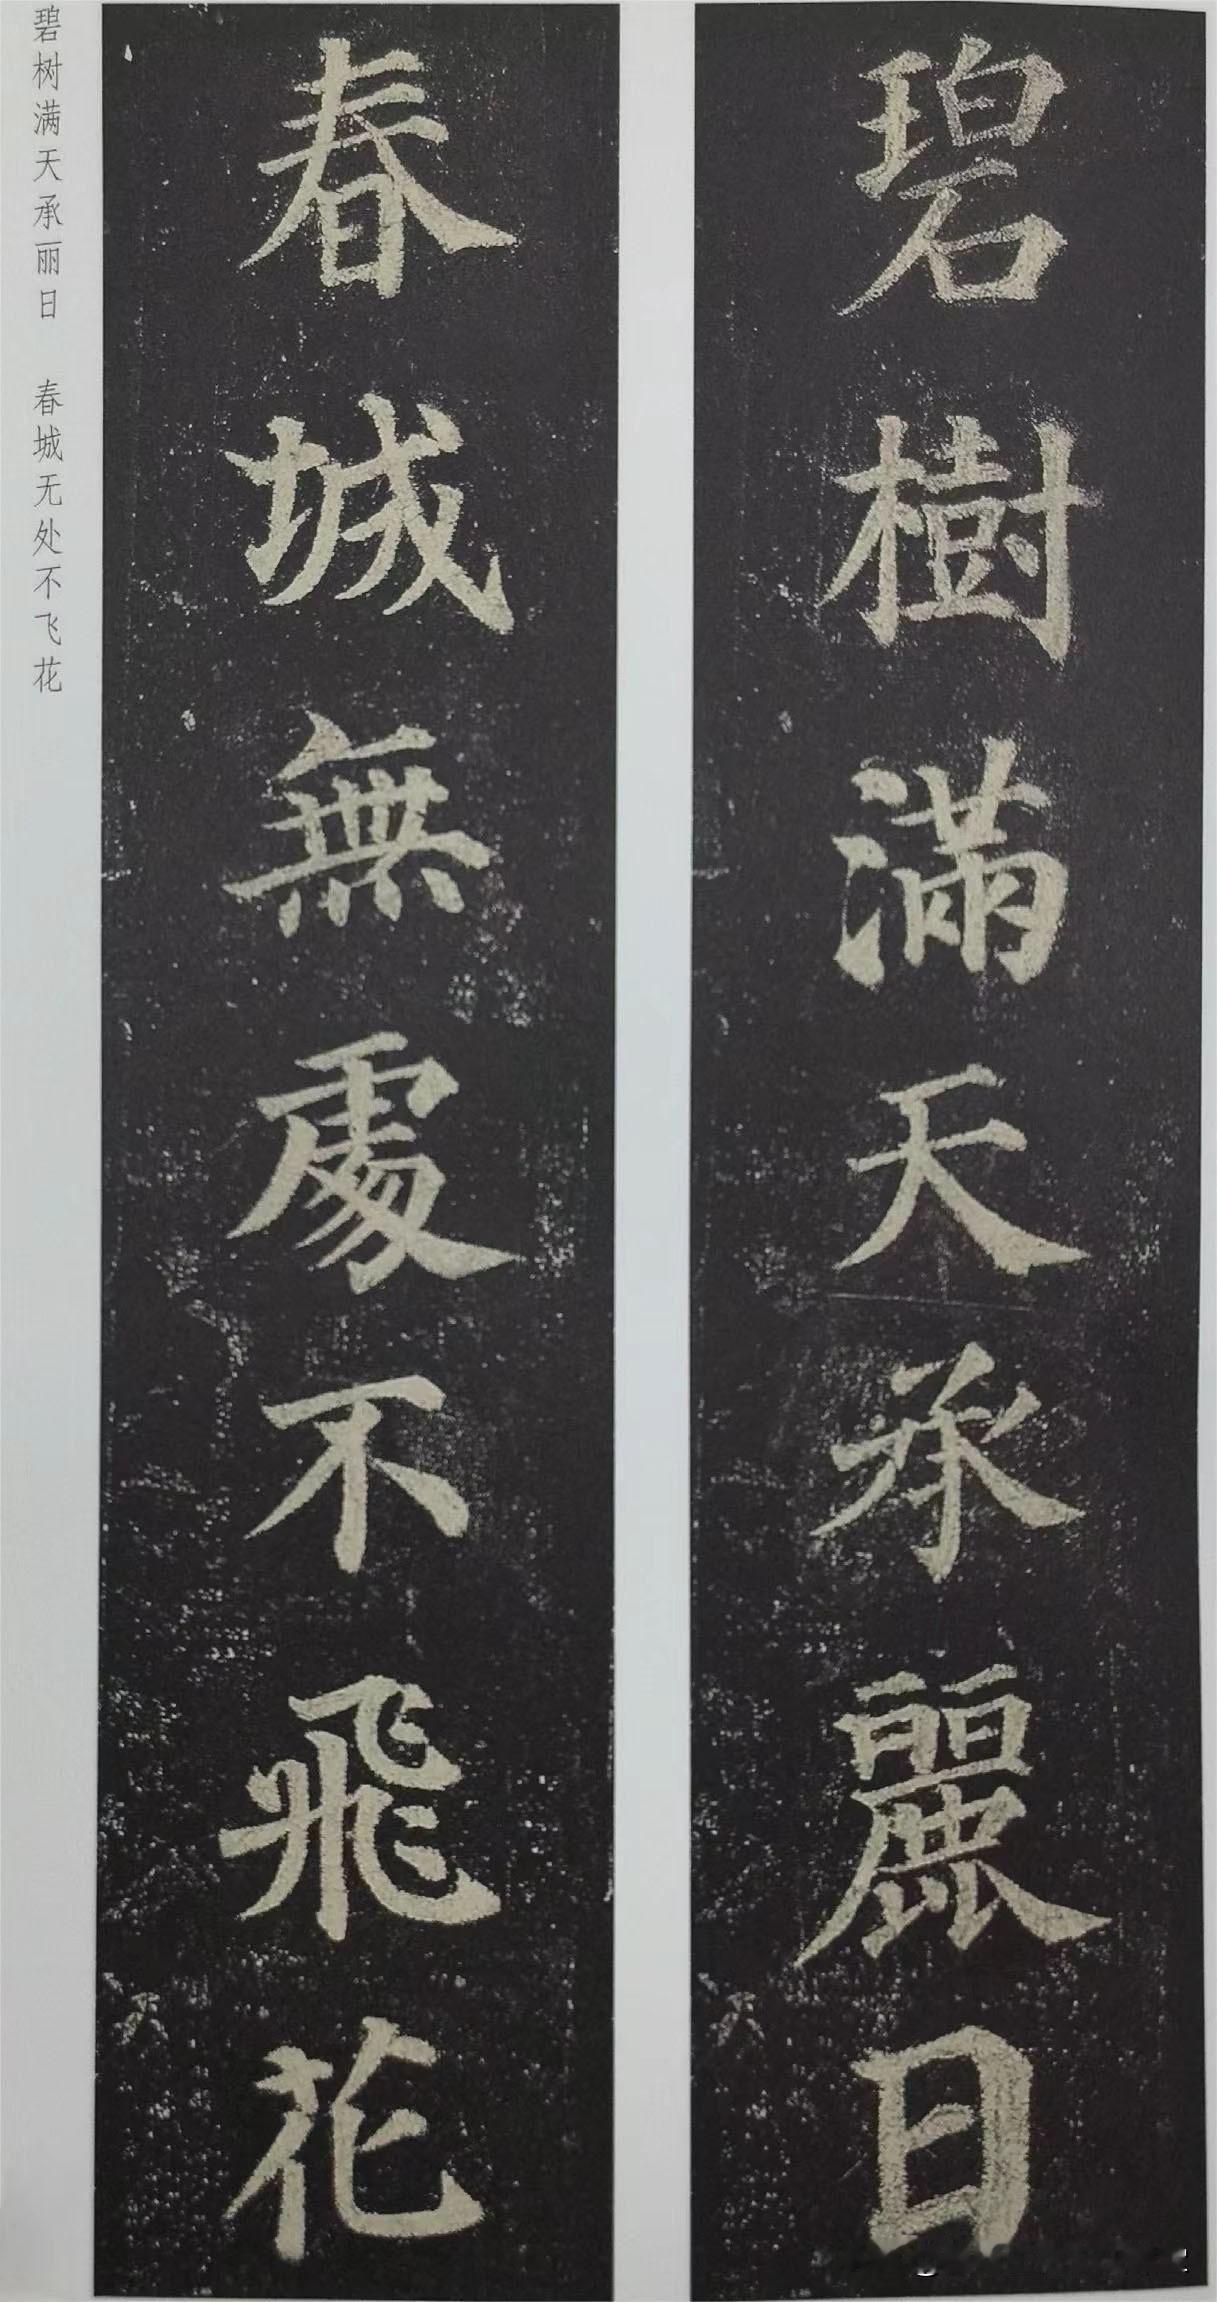 碧樹滿天承麗日
春城無處不飛花
碧树满天承丽日 春城无处不飞花